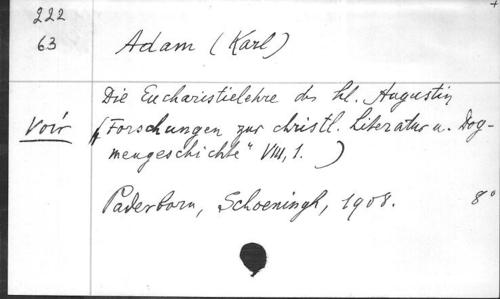 222
63
Adam (Karl)
Die Eucharistielehre des hl. Augustin
Voir
("Forschungen zur christl. Literatur u. Dog-
mengeschichte" VIII, 1. )
Paderborn, Schoeningh, 1908. 8°